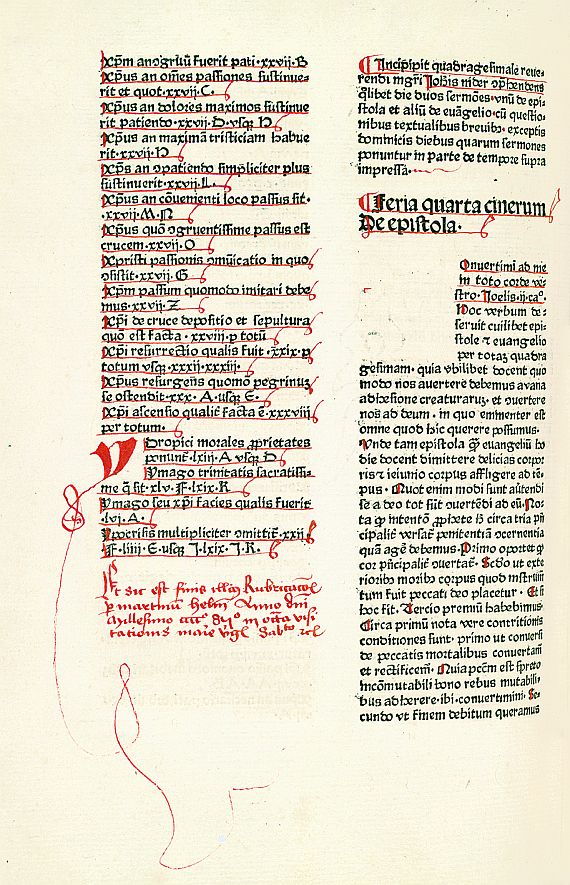 Xp̄m angr̄uū fuerit pati·xxvij·B
Xp̄us an oēs passiones sustinue-
rit et quot·xxvij·C·
Xp̄us an dolores maximos sustinue
rit patiendo·xxvij·D·vsq̄ H
Xp̄us an maximā tristiciam habue
rit·xxvij·H
Xp̄us an ꝯpatiendo simpliciter plus
sustinuerit·xxvij·L·
Xp̄us an cōuenienti loco passus sit·
·xxvij·M·N
Xp̄us quō ꝯgruentissime passus est
crucem·xxvij·O
Xpristi passionis ꝯmūicatio in quo
ꝯsistit·xxvij·G
Xp̄m passum quomodo imitari debe
mus·xxvij·Z
Xp̄i de cruce depositio et sepultura
quō est facta·xxviij·p̄ totū
Xp̄i resurrectio qualis fuit·xxix·p̄
totum vsq̄·xxxij·xxxiij·
Xp̄us resurgens quomō pegrinus
se ostendit·xxx·A·vsq̄ E·
Xp̄i ascensio qualit̄ facta ē·xxxviij
per totum·
Ydropici morales ꝓprietates
ponunt̄·lxiij·A vsq̄ D
Ymago trinitatis sacratissi-
me q̄ sit·xlv·F·lxix·K
Ymago seu xp̄i facies qualis fuerit
·lvj·A·
Ypocrisis multipliciter ꝯmittit̄·xxij
·F·liiij·E·vsq̄ I·lxix·I·K·
Et sic est finis
p̄ martinū helm Anno dn̄i
Millesimo in octa visi
tationis marie
Incipit quadragesimale reue-
rendi mgr̄i Joh̄is nider ꝯp̄hendens
q̄libet die duos sermōes·vnū de epi-
stola et aliū de euāgelio·cū questio-
nibus textualibus breuib9·exceptis
dominicis diebus quarum sermones
ponuntur in parte de tempore supra
impressa·
Feria quarta cinerum
De epistola·
Onuertimī ad me
in toto corde ve-
stro·Joelis·ij·ca°·
Hoc verbum de-
seruit cuilibet epi-
stole ⁊ euangelio
per totaȝ quadra
gesimam·quia vbilibet docent quo
modo nos auertere debemus a vana
adhesione creaturaruȝ·et ꝯuertere
nos ad deum·in quo eminenter est
omne quod hic querere possumus·
Unde tam epistola q̄ȝ euangeliū ho
die docent dimittere delicias corpor
ris ⁊ ieiunio corpus affligere ad tē-
pus·Quot enim modi sunt abstēdi
se a deo tot sūt ꝯuertēdi ad eū·No-
ta q̄ȝ intentō ꝓphete hͦ circa tria pn̄
cipalit̄ versat̄ penitentiā ꝯcernentia
quā agē debemus·Primo oportet q̄ȝ
cor pn̄cipalit̄ ꝯuertat̄·Scd̄o ut exte
rioribo moribo corpus quod instrum̄
tum fuit peccati deo placetur·Et si
hoc fit·Tercio premiū habebimus·
Circa primū nota vere contritionis
conditiones sunt·primo ut conuersi
de peccatis mortalibus conuertam̄
et rectificem̄·Quia pcc̄m est spreto
incōmutabili bono rebus mutabili-
bus adherere·ibi·conuertimini·Se-
cundo vt finem debitum queramus